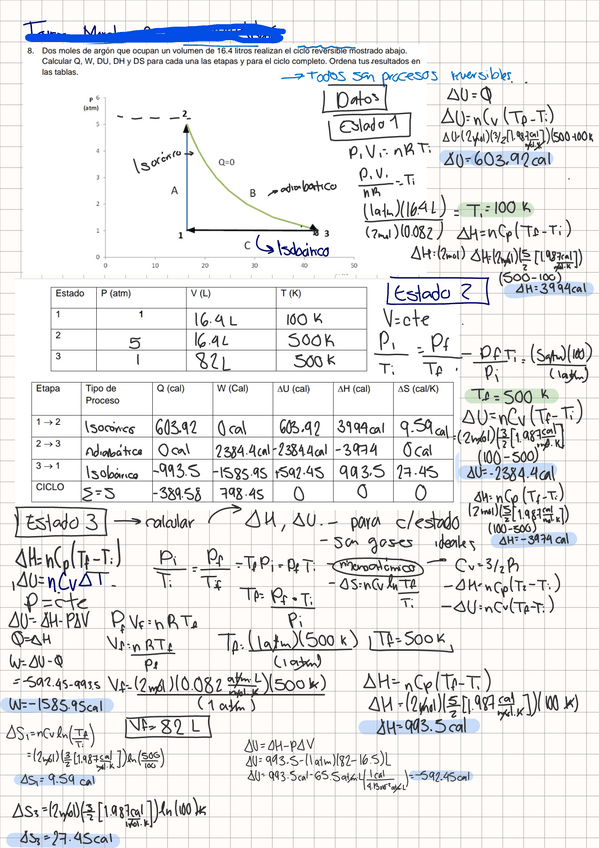 8. Dos moles de argón que ocupan un volumen de 16.4 litros realizan el ciclo reversible mostrado abajo.
Calcular Q, W, DU, DH y DS para cada una las etapas y para el ciclo completo. Ordena tus resultados en
las tablas.
→ Todos son procesos reversibles.
P
(atm)
6
5
4
3
2
1
0
0 10 20 30 40 50
2
Isocórico
Q=0
A
B → adiabático
1
3
C → Isobárico
Datos
Estado 1
P₁V₁=nRT₁
P₁V₁/nR = T₁
(1atm)(16.4L)/(2mol)(0.082) = T₁=100 K
ΔU=Q
ΔU=nCv(Tf-Ti)
ΔU=(2mol)(3/2[1.987cal/mol.K])(500-100K
ΔU=603.92cal
ΔH=nCp(Tf-Ti)
ΔH=(2mol) ΔH=(2mol)(5/2[1.987cal/mol.K])
(500-100)
ΔH=3994cal
Estado P (atm) V (L) T (K)
1 1 16.4L 100K
2 5 16.4L 500K
3 1 82L 500K
Estado 2
V=cte
Pi/Ti = Pf/Tf - PfTi/Pi = (5atm)(100)/(1atm)
Tf = 500 K
Etapa Tipo de Proceso Q (cal) W (Cal) ΔU (cal) ΔH (cal) ΔS (cal/K)
1 → 2 Isocórico 603.92 0cal 603.92 3994cal 9.59cal
2 → 3 Adiabático 0cal 2384.4cal -2384.4cal -3974 0cal
3 → 1 Isobárico -993.5 -1585.95 +592.45 993.5 27.45
CICLO Σ=S -389.58 798.45 0 0 0
ΔU=nCv(Tf-Ti)
=(2mol)(3/2[1.987cal/mol.K])
(100-500)
ΔU=-2384.4cal
ΔH=nCp(Tf-Ti)
(2mol)(5/2[1.987cal/mol.K])
(100-500)
ΔH=-3974 cal
Estado 3 → calcular → ΔH, ΔU. - para c/estado
- son gases ideales
monoatómico → Cv=3/2R
- ΔS=nCv ln Tf/Ti
- ΔH=nCp(T2-Ti)
- ΔU=nCv(Tf-Ti)
ΔH=nCp(Tf-Ti)
ΔU=nCvΔT
P=cte
ΔU=ΔH-PΔV
Q=ΔH
W=ΔU-Q
=-592.45-993.5
W=-1585.95cal
Pi/Ti = Pf/Tf - TfPi=PfTi
Tf=Pf·Ti/Pi
PfVf=nRTf
Vf=nRTf/Pf
Tf=(1atm)(500K)/(1atm) Tf=500K
Vf=(2mol)(0.082 atm.L/mol.K)(500K)/(1atm)
Vf=82 L
ΔH=nCp(Tf-Ti)
ΔH=(2mol)(5/2[1.987 cal/mol.K])(100K)
ΔH=993.5cal
ΔS₁=nCv ln(Tf/Ti)
=(2mol)(3/2[1.987cal/mol.K])ln(500/100)
ΔS₁=9.59 cal
ΔU=ΔH-PΔV
ΔU=993.5-(1atm)(82-16.5)L
ΔU=993.5cal-65.5atm.L =-592.45cal
ΔS₃=(2mol)(3/2[1.987cal/mol.K])ln(100)K
ΔS₃=27.45cal